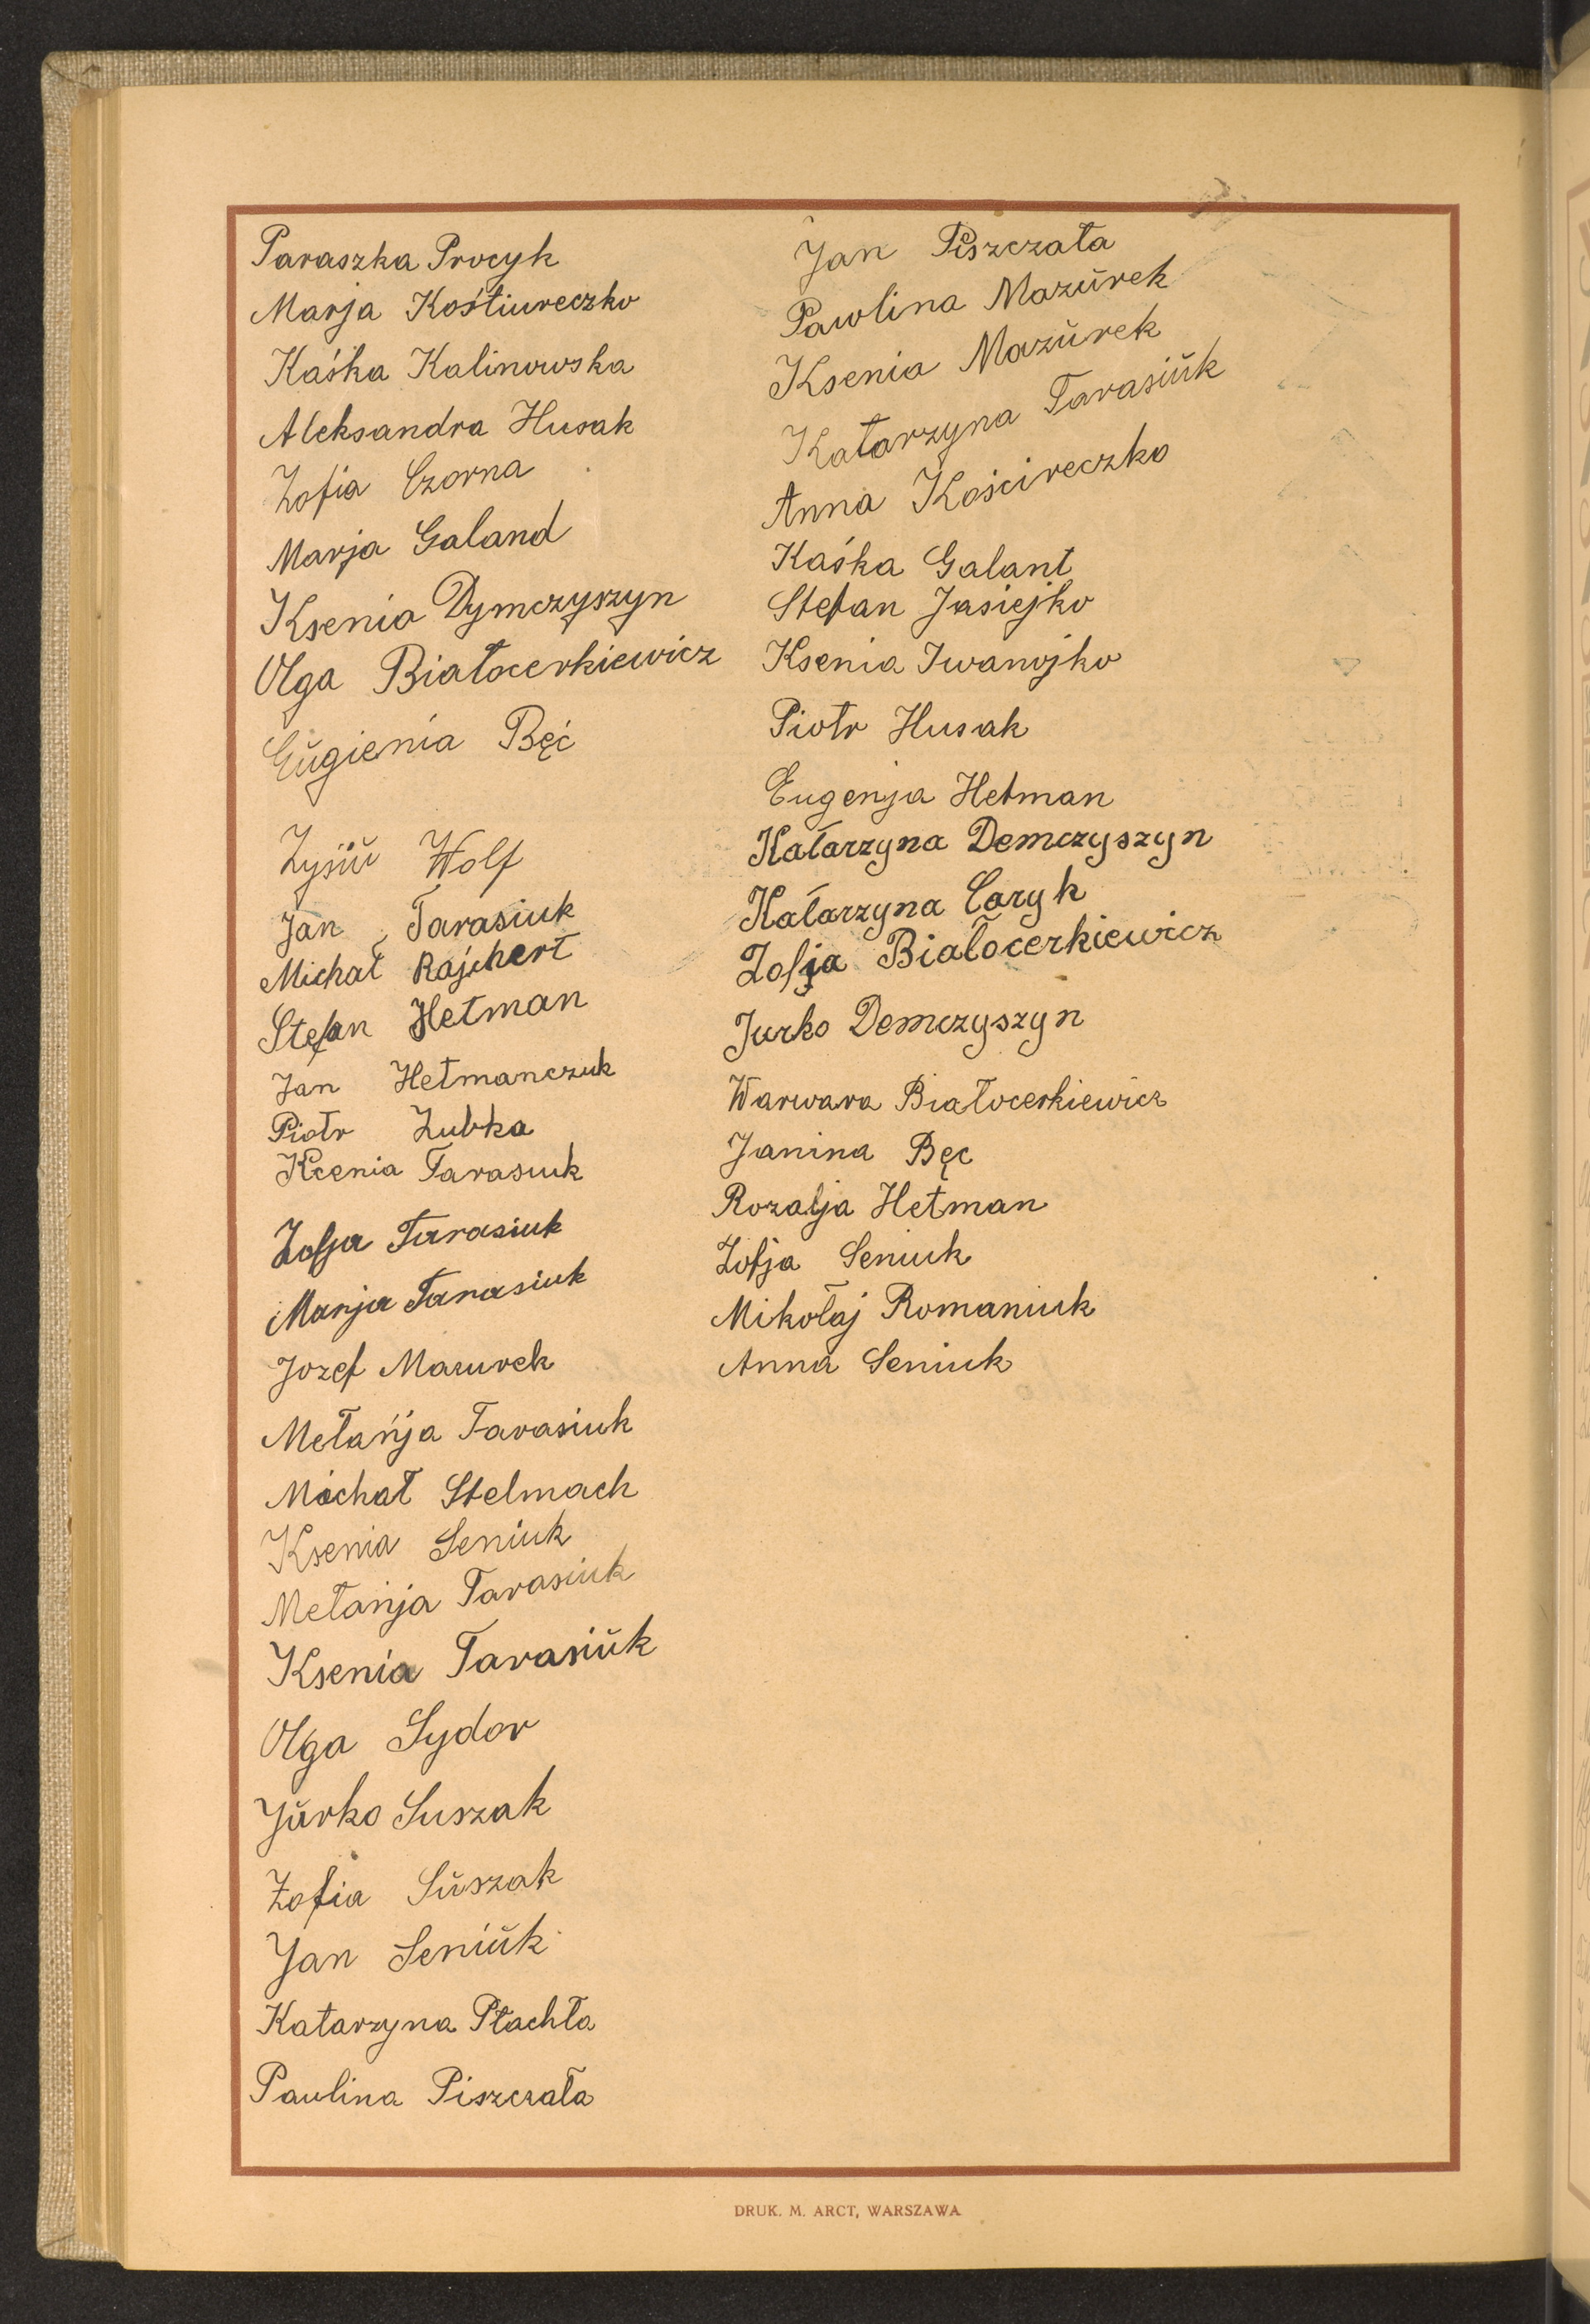 Paraszka Procyk
Marja Kośtiureczko
Kaśka Kalinowska
Aleksandra Husak
Zofia Czorna
Marja Galand
Ksenia Dymczyszyn
Olga Białocerkiewicz
Eŭgienia Bęć
Zysiŭ Wolf
Jan Tarasiuk
Michał Rajchert
Stefan Hetman
Jan Hetmanczuk
Piotr Zubka
Kcenia Tarasiuk
Zofja Tarasiuk
Marja Tarasiuk
Jozef Mazurek
Metańja Tarasiuk
Michał Stelmach
Ksenia Seniuk
Metańja Tarasiuk
Ksenia Tarasiŭk
Olga Sydor
Jŭrko Suszak
Zofia Sŭszak
Jan Seniŭk
Katarzyna Płachta
Paulina Piszczała
Jan Piszczała
Pawlina Mazŭrek
Ksenia Mazŭrek
Katarzyna Tarasiŭk
Anna Kościreczko
Kaśka Galant
Stefan Jasiejko
Ksenia Iwanojko
Piotr Husak
Eugenja Hetman
Katarzyna Demczyszyn
Katarzyna Caryk
Zofja Białocerkiewicz
Jurko Demczyszyn
Warwara Białocerkiewicz
Janina Bęc
Rozalja Hetman
Zofja Seniuk
Mikołaj Romaniuk
Anna Seniuk
DRUK. M. ARCT, WARSZAWA